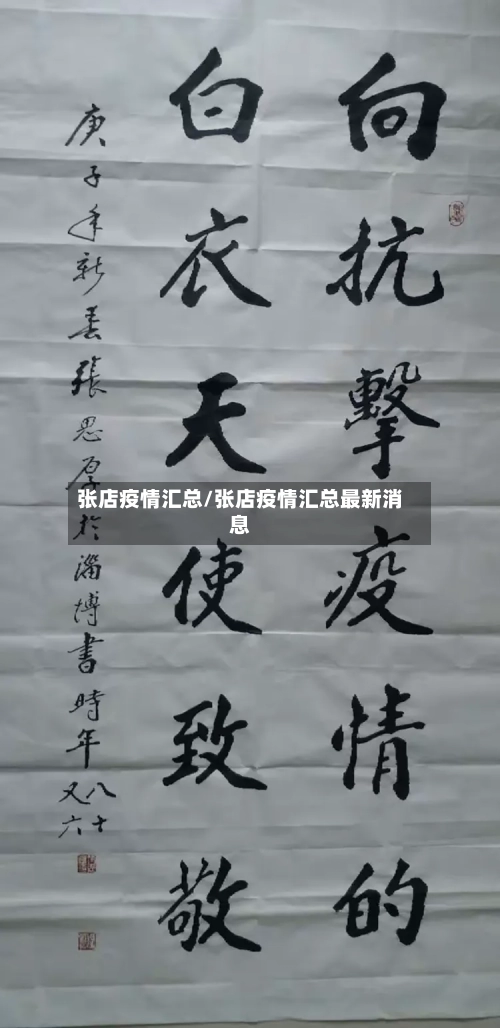 向抗擊疫情的
白衣天使致敬
庚子年新春張思厚於淄博書時年八十
又六
张店疫情汇总/张店疫情汇总最新消
息